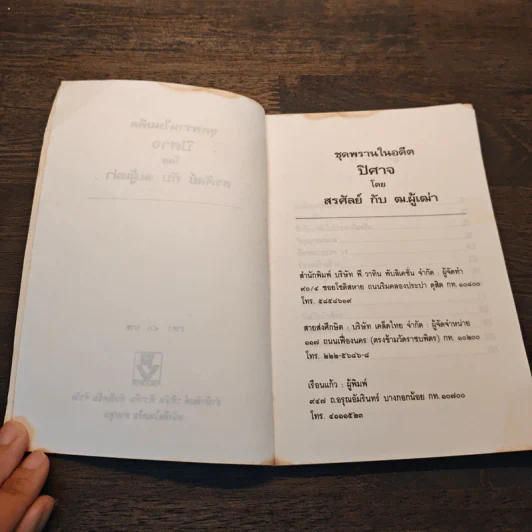 ชุดพรานในอดีต
ปีศาจ
โดย
สรศัลย์ กับ ฒ.ผู้เฒ่า
สำนักพิมพ์ บริษัท พี.วาทิน พับลิเคชั่น จำกัด : ผู้จัดทำ
๙๐/๔ ซอยโชติสหาย ถนนริมคลองประปา ดุสิต กท. ๑๐๘๐๐
โทร. ๕๘๕๘๖๑๙
สายส่งศึกษิต : บริษัท เคล็ดไทย จำกัด : ผู้จัดจำหน่าย
๑๑๗ ถนนเฟื่องนคร (ตรงข้ามวัดราชบพิตร) กท. ๑๐๒๐๐
โทร. ๒๒๒-๕๖๙๖-๘
เรือนแก้ว : ผู้พิมพ์
๙๔๗ ถ.อรุณอัมรินทร์ บางกอกน้อย กท. ๑๐๗๐๐
โทร. ๔๑๑๑๕๒๓